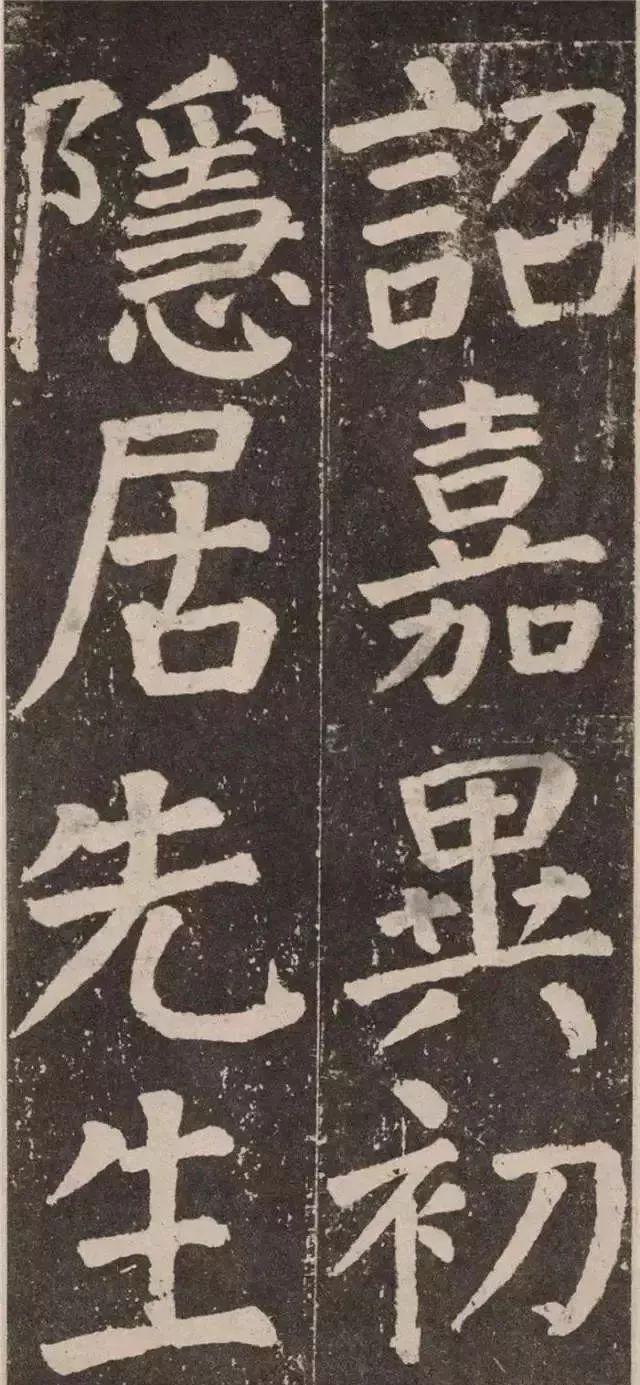 詔嘉異初
隱居先生